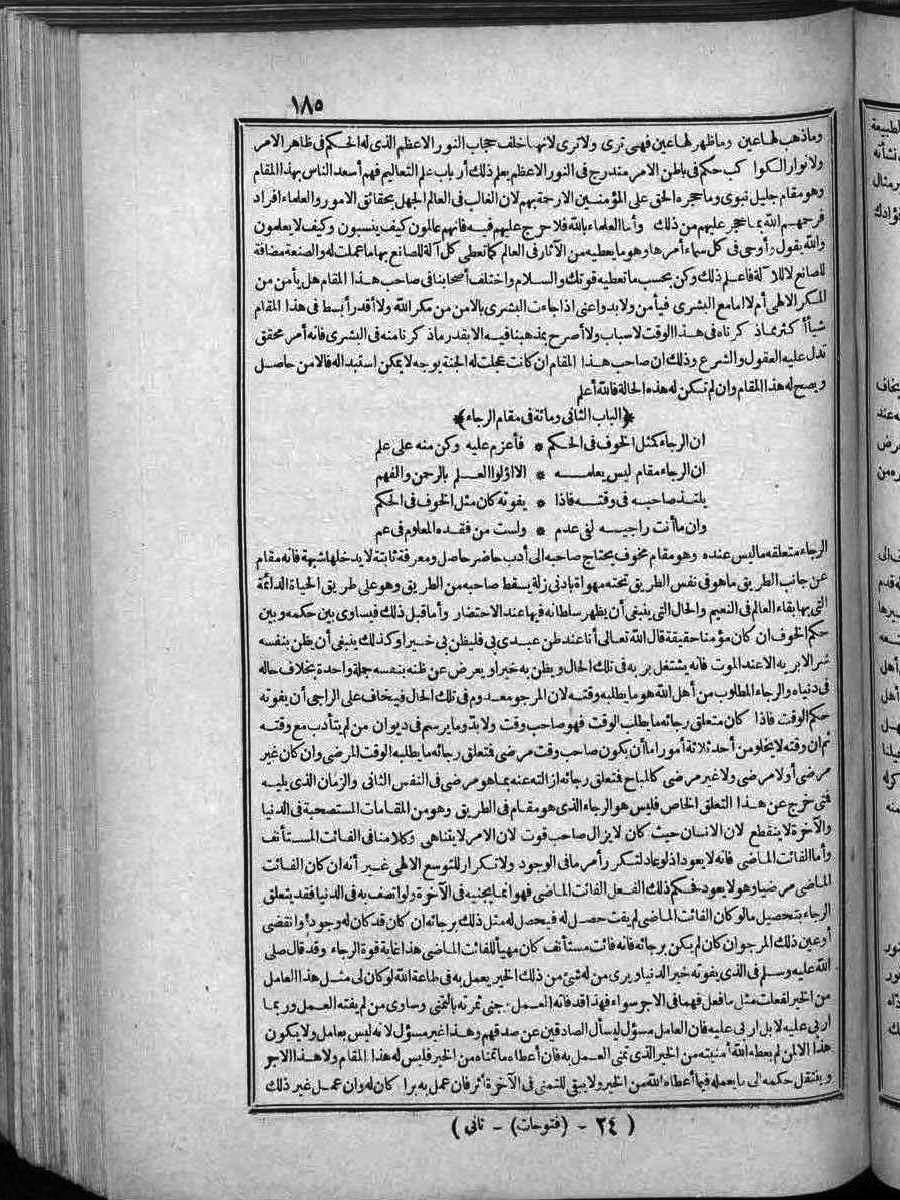 ١٨٥
وما ذهب لهاعين وما ظهر لهاعين فهى ترى ولا ترى لانها خلف حجاب النور الاعظم الذى له الحكم فى ظاهر الامر
ولانوار الكواكب حكم فى باطن الامر مندرج فى النور الاعظم يعلم ذلك أرباب علم التعاليم فهم أسعد الناس بهذا المقام
وهو مقام جليل نبوى وما حجره الحق على المؤمنين الارحمة بهم لان الغالب فى العالم الجهل بحقائق الامور والعلماء افراد
فرحمهم الله بما حجر عليهم من ذلك وأما العلماء بالله فلا حرج عليهم فيه فانهم عالمون كيف ينسبون وكيف لا يعلمون
والله يقول وأوحى فى كل سماء أمرها وهو ما يعطيه من الآثار فى العالم كما تعطى كل آلة للصانع بها ما عملت له والصنعة مضافة
للصانع لا للآلة فاعلم ذلك وكن بحسب ما تعطيه قوتك والسلام واختلف أصحابنا فى صاحب هذا المقام هل يأمن من
المكر الالهى أم لا امامع البشرى فيأمن ولا بد واعنى اذا جاءت البشرى بالامن من مكر الله ولا أقدر أبسط فى هذا المقام
شيأ أكثر مماذكرناه فى هذا الوقت لاسباب ولا أصرح بمذهبنا فيه الا بقدر ما ذكرنا منه فى البشرى فانه أمر محقق
تدل عليه العقول والشرع وذلك ان صاحب هذا المقام ان كانت عجلت له الجنة بوجه لا يمكن استبداله فالامن حاصل
ويصح له هذا المقام وان لم تكن له هذه الحالة فالله أعلم
﴿الباب الثانى ومائة فى مقام الرجاء﴾
ان الرجاء كمثل الخوف فى الحكم * فأعزم عليه وكن منه على علم
ان الرجاء مقام ليس يعلمه * الا اولوا العلم بالرحمن والفهم
يلتذ صاحبه فى وقته فاذا * يفوته كان مثل الخوف فى الحكم
وان ما أنت راجيه لفى عدم * ولست من فقده المعلوم فى عم
الرجاء متعلقه ما ليس عنده وهو مقام مخوف يحتاج صاحبه الى أدب حاضر حاصل ومعرفة ثابتة لا يدخلها شبهة فانه مقام
عن جانب الطريق ما هو فى نفس الطريق تحته مهواة بادنى زلة يسقط صاحبه من الطريق وهو على طريق الحياة الدائمة
التى بها بقاء العالم فى النعيم والحال التى ينبغى أن يظهر سلطانه فيها عند الاحتضار وأما قبل ذلك فيساوى بين حكمه وبين
حكم الخوف ان كان مؤمنا حقيقة قال الله تعالى أنا عند ظن عبدى بى فليظن بى خيرا وكذلك ينبغى أن يظن بنفسه
شر الابربه الا عند الموت فانه يشتغل بربه فى تلك الحال ويظن به خيرا ويعرض عن ظنه بنفسه جملة واحدة بخلاف حاله
فى دنياه والرجاء المطلوب من أهل الله هو ما يطلبه وقته لان المرجو معدوم فى تلك الحال فيخاف على الراجى أن يفوته
حكم الوقت فاذا كان متعلق رجائه ما طلب الوقت فهو صاحب وقت ولا بد وما يرسم فى ديوان من لم يتأدب مع وقته
ثم ان وقته لا يخلو من أحد ثلاثة أمور اما أن يكون صاحب وقت مرضى فتعلق رجائه ما يطلبه الوقت المرضى وان كان غير
مرضى أولا مرضى ولا غير مرضى كالمباح فتعلق رجائه ازالته عنه بما هو مرضى فى النفس الثانى والزمان الذى يليه
فتى خرج عن هذا التعلق الخاص فليس هو الرجاء الذى هو مقام فى الطريق وهو من المقامات المستصحبة فى الدنيا
والآخرة لا ينقطع لان الانسان حيث كان لا يزال صاحب فوت لان الامر لا يتناهى وكلامنا فى الفائت المستأنف
وأما الفائت الماضى فانه لا يعود اذ لو عاد لتكرر أمر ما فى الوجود ولا تكرار للتوسع الالهى غير أنه ان كان الفائت
الماضى مرضيا وهو لا يعود فحكم ذلك الفعل الفائت الماضى فهو انما يجنيه فى الآخرة ولو اتصف به فى الدنيا فقد يتعلق
الرجاء بتحصيل ما لو كان الفائت الماضى لم يفت حصل له فيحصل له مثل ذلك برجائه ان كان قد كان له وجود وانقضى
أوعين ذلك المرجو ان كان لم يكن برجائه فانه فائت مستأنف كان مهيأ للفائت الماضى هذا غاية قوة الرجاء وقد قال صلى
الله عليه وسلم فى الذى يفوته خير الدنيا ويرى من له شئ من ذلك الخير يعمل به فى طاعة الله لو كان لى مثل هذا العامل
من الخير لفعلت مثل ما فعل فهما فى الاجر سواء فهذا قد فاته العمل وجنى ثمرته بالتمنى وساوى من لم يفته العمل وربما
اربى عليه لا بل اربى عليه فان العامل مسؤل ليسأل الصادقين عن صدقهم وهذا غير مسؤل لانه ليس بعامل ولا يكون
هذا الا لمن لم يعطه الله أمنيته من الخير الذى تمنى العمل به فان أعطاه ما تمناه من الخير فليس له هذا المقام ولا هذا الاجر
وينتقل حكمه الى ما يعمله فيما أعطاه الله من الخير ولا يبقى للتمنى فى الآخرة أثر فان عمل به برا كان له وان عمل غير ذلك
( ٢٤ - (فتوحات) - ثانى )